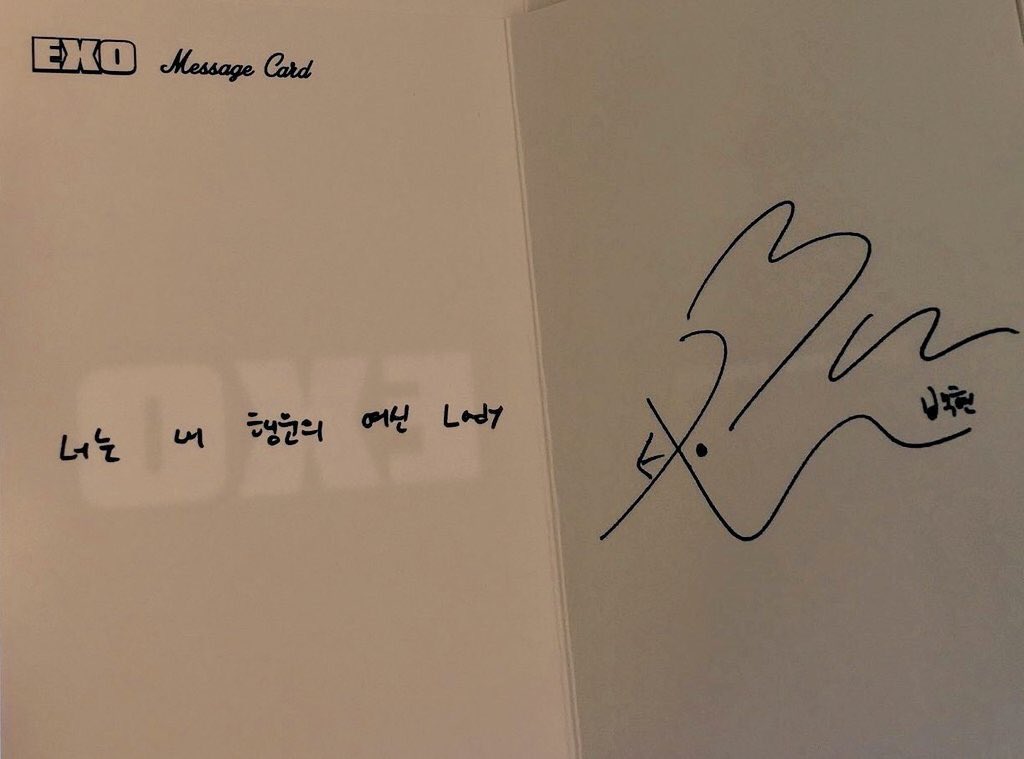 EXO Message Card
너는 내 행운의 여신 Lady
백현